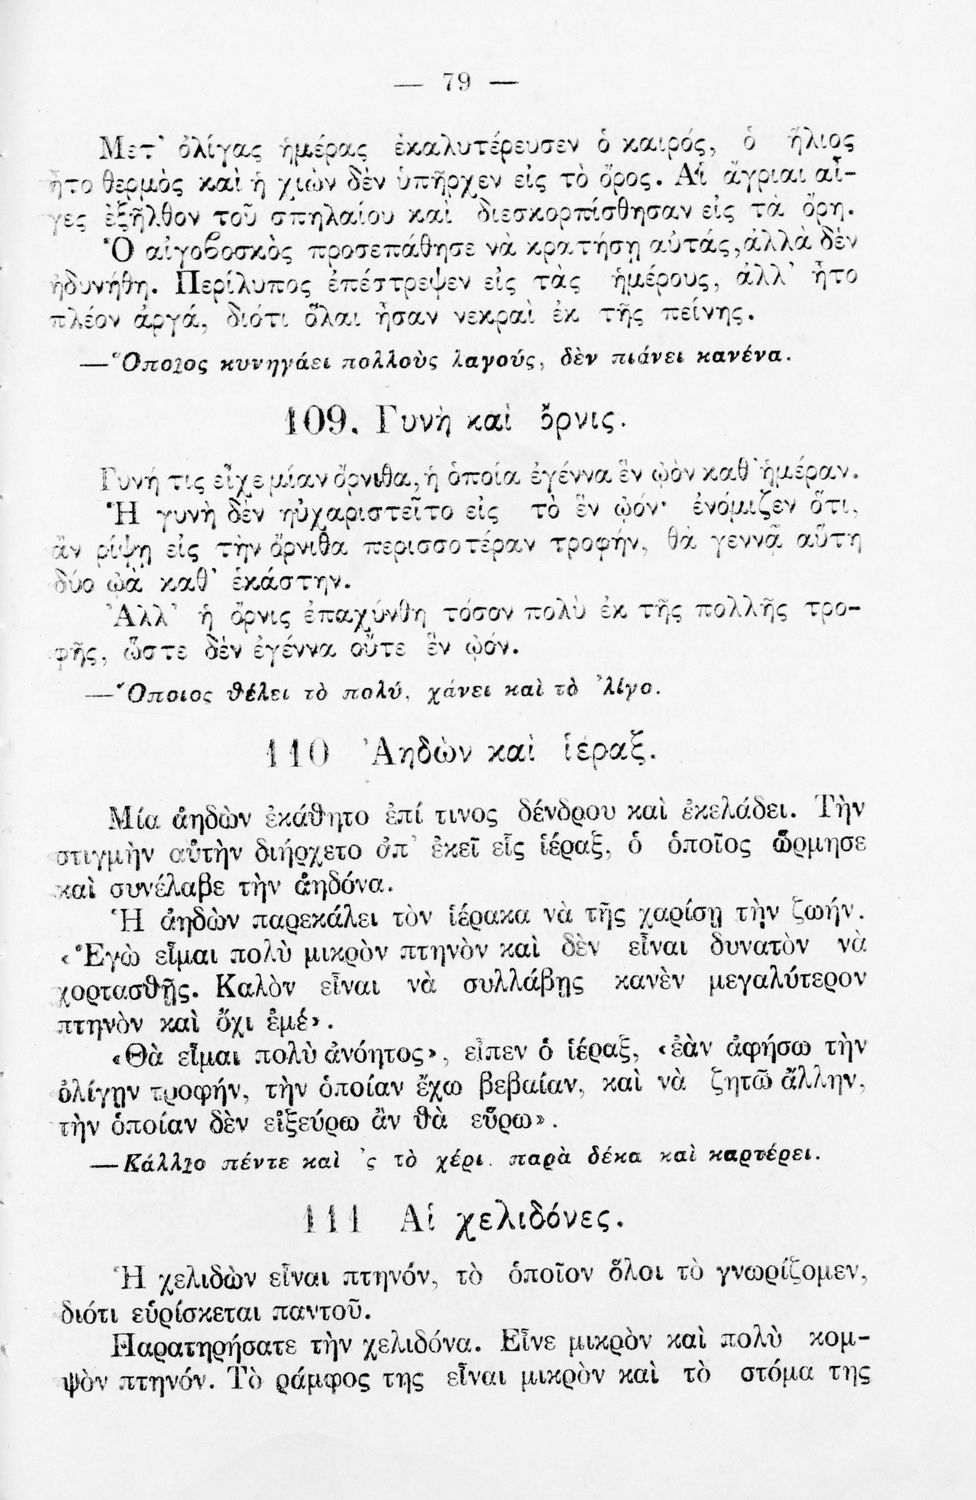 — 79 —
Μετ' ὀλίγας ἡμέρας ἐκαλυτέρευσεν ὁ καιρός, ὁ ἥλιος
ἦτο θερμὸς καὶ ἡ χιὼν δὲν ὑπῆρχεν εἰς τὸ ὄρος. Αἱ ἄγριαι αἶ-
γες ἐξῆλθον τοῦ σπηλαίου καὶ διεσκορπίσθησαν εἰς τὰ ὄρη.
Ὁ αἰγοβοσκὸς προσεπάθησε νὰ κρατήσῃ αὐτάς, ἀλλὰ δὲν
ἠδυνήθη. Περίλυπος ἐπέστρεψεν εἰς τὰς ἡμέρους, ἀλλ' ἦτο
πλέον ἀργά, διότι ὅλαι ἦσαν νεκραὶ ἐκ τῆς πείνης.
—Ὅποιος κυνηγάει πολλοὺς λαγούς, δὲν πιάνει κανένα.
109. Γυνὴ καὶ ὄρνις.
Γυνή τις εἶχε μίαν ὄρνιθα, ἡ ὁποία ἐγέννα ἓν ᾠὸν καθ' ἡμέραν.
Ἡ γυνὴ δὲν ηὐχαριστεῖτο εἰς τὸ ἓν ᾠόν· ἐνόμιζεν ὅτι,
ἂν ρίψῃ εἰς τὴν ὄρνιθα περισσοτέραν τροφήν, θὰ γεννᾷ αὕτη
δύο ᾠὰ καθ' ἑκάστην.
Ἀλλ' ἡ ὄρνις ἐπαχύνθη τόσον πολὺ ἐκ τῆς πολλῆς τρο-
φῆς, ὥστε δὲν ἐγέννα οὔτε ἓν ᾠόν.
—Ὅποιος θέλει τὸ πολύ, χάνει καὶ τὸ 'λίγο.
110 Ἀηδὼν καὶ ἱέραξ.
Μία ἀηδὼν ἐκάθητο ἐπί τινος δένδρου καὶ ἐκελάδει. Τὴν
στιγμὴν αὐτὴν διήρχετο ἀπ' ἐκεῖ εἷς ἱέραξ, ὁ ὁποῖος ὥρμησε
καὶ συνέλαβε τὴν ἀηδόνα.
Ἡ ἀηδὼν παρεκάλει τὸν ἱέρακα νὰ τῆς χαρίσῃ τὴν ζωήν.
«Ἐγὼ εἶμαι πολὺ μικρὸν πτηνὸν καὶ δὲν εἶναι δυνατὸν νὰ
χορτασθῇς. Καλὸν εἶναι νὰ συλλάβῃς κανὲν μεγαλύτερον
πτηνὸν καὶ ὄχι ἐμέ».
«Θὰ εἶμαι πολὺ ἀνόητος», εἶπεν ὁ ἱέραξ, «ἐὰν ἀφήσω τὴν
ὀλίγην τροφήν, τὴν ὁποίαν ἔχω βεβαίαν, καὶ νὰ ζητῶ ἄλλην,
τὴν ὁποίαν δὲν εἰξεύρω ἂν θὰ εὕρω».
—Κάλλιο πέντε καὶ 'ς τὸ χέρι. παρὰ δέκα καὶ καρτέρει.
111 Αἱ χελιδόνες.
Ἡ χελιδὼν εἶναι πτηνόν, τὸ ὁποῖον ὅλοι τὸ γνωρίζομεν,
διότι εὑρίσκεται παντοῦ.
Παρατηρήσατε τὴν χελιδόνα. Εἶνε μικρὸν καὶ πολὺ κομ-
ψὸν πτηνόν. Τὸ ράμφος της εἶναι μικρὸν καὶ τὸ στόμα της